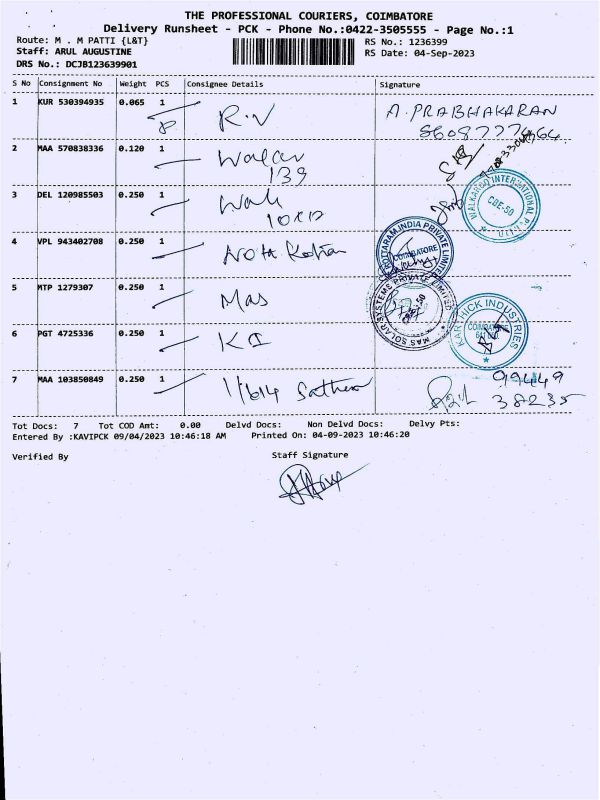 THE PROFESSIONAL COURIERS, COIMBATORE
Delivery Runsheet - PCK - Phone No.:0422-3505555 - Page No.:1
Route: M . M PATTI {L&T}
RS No.: 1236399
Staff: ARUL AUGUSTINE
RS Date: 04-Sep-2023
DRS No.: DCJB123639901
S No Consignment No Weight PCS Consignee Details Signature
1 KUR 530394935 0.065 1 R.V A. PRABHAKARAN
2 MAA 570838336 0.120 1
139
3 DEL 120985503 0.250 1
WALKAROO INTERNATIONAL
CBE-50
4 VPL 943402708 0.250 1
INDIA PRIVATE LIMITED
COIMBATORE
5 MTP 1279307 0.250 1 Mas
MAS SOLAR SYSTEMS PRIVATE LIMITED
6 PGT 4725336 0.250 1 K I
KARTHICK INDUSTRIES
7 MAA 103850849 0.250 1 99449
38235
Tot Docs: 7 Tot COD Amt: 0.00 Delvd Docs: Non Delvd Docs: Delvy Pts:
Entered By :KAVIPCK 09/04/2023 10:46:18 AM Printed On: 04-09-2023 10:46:20
Verified By Staff Signature